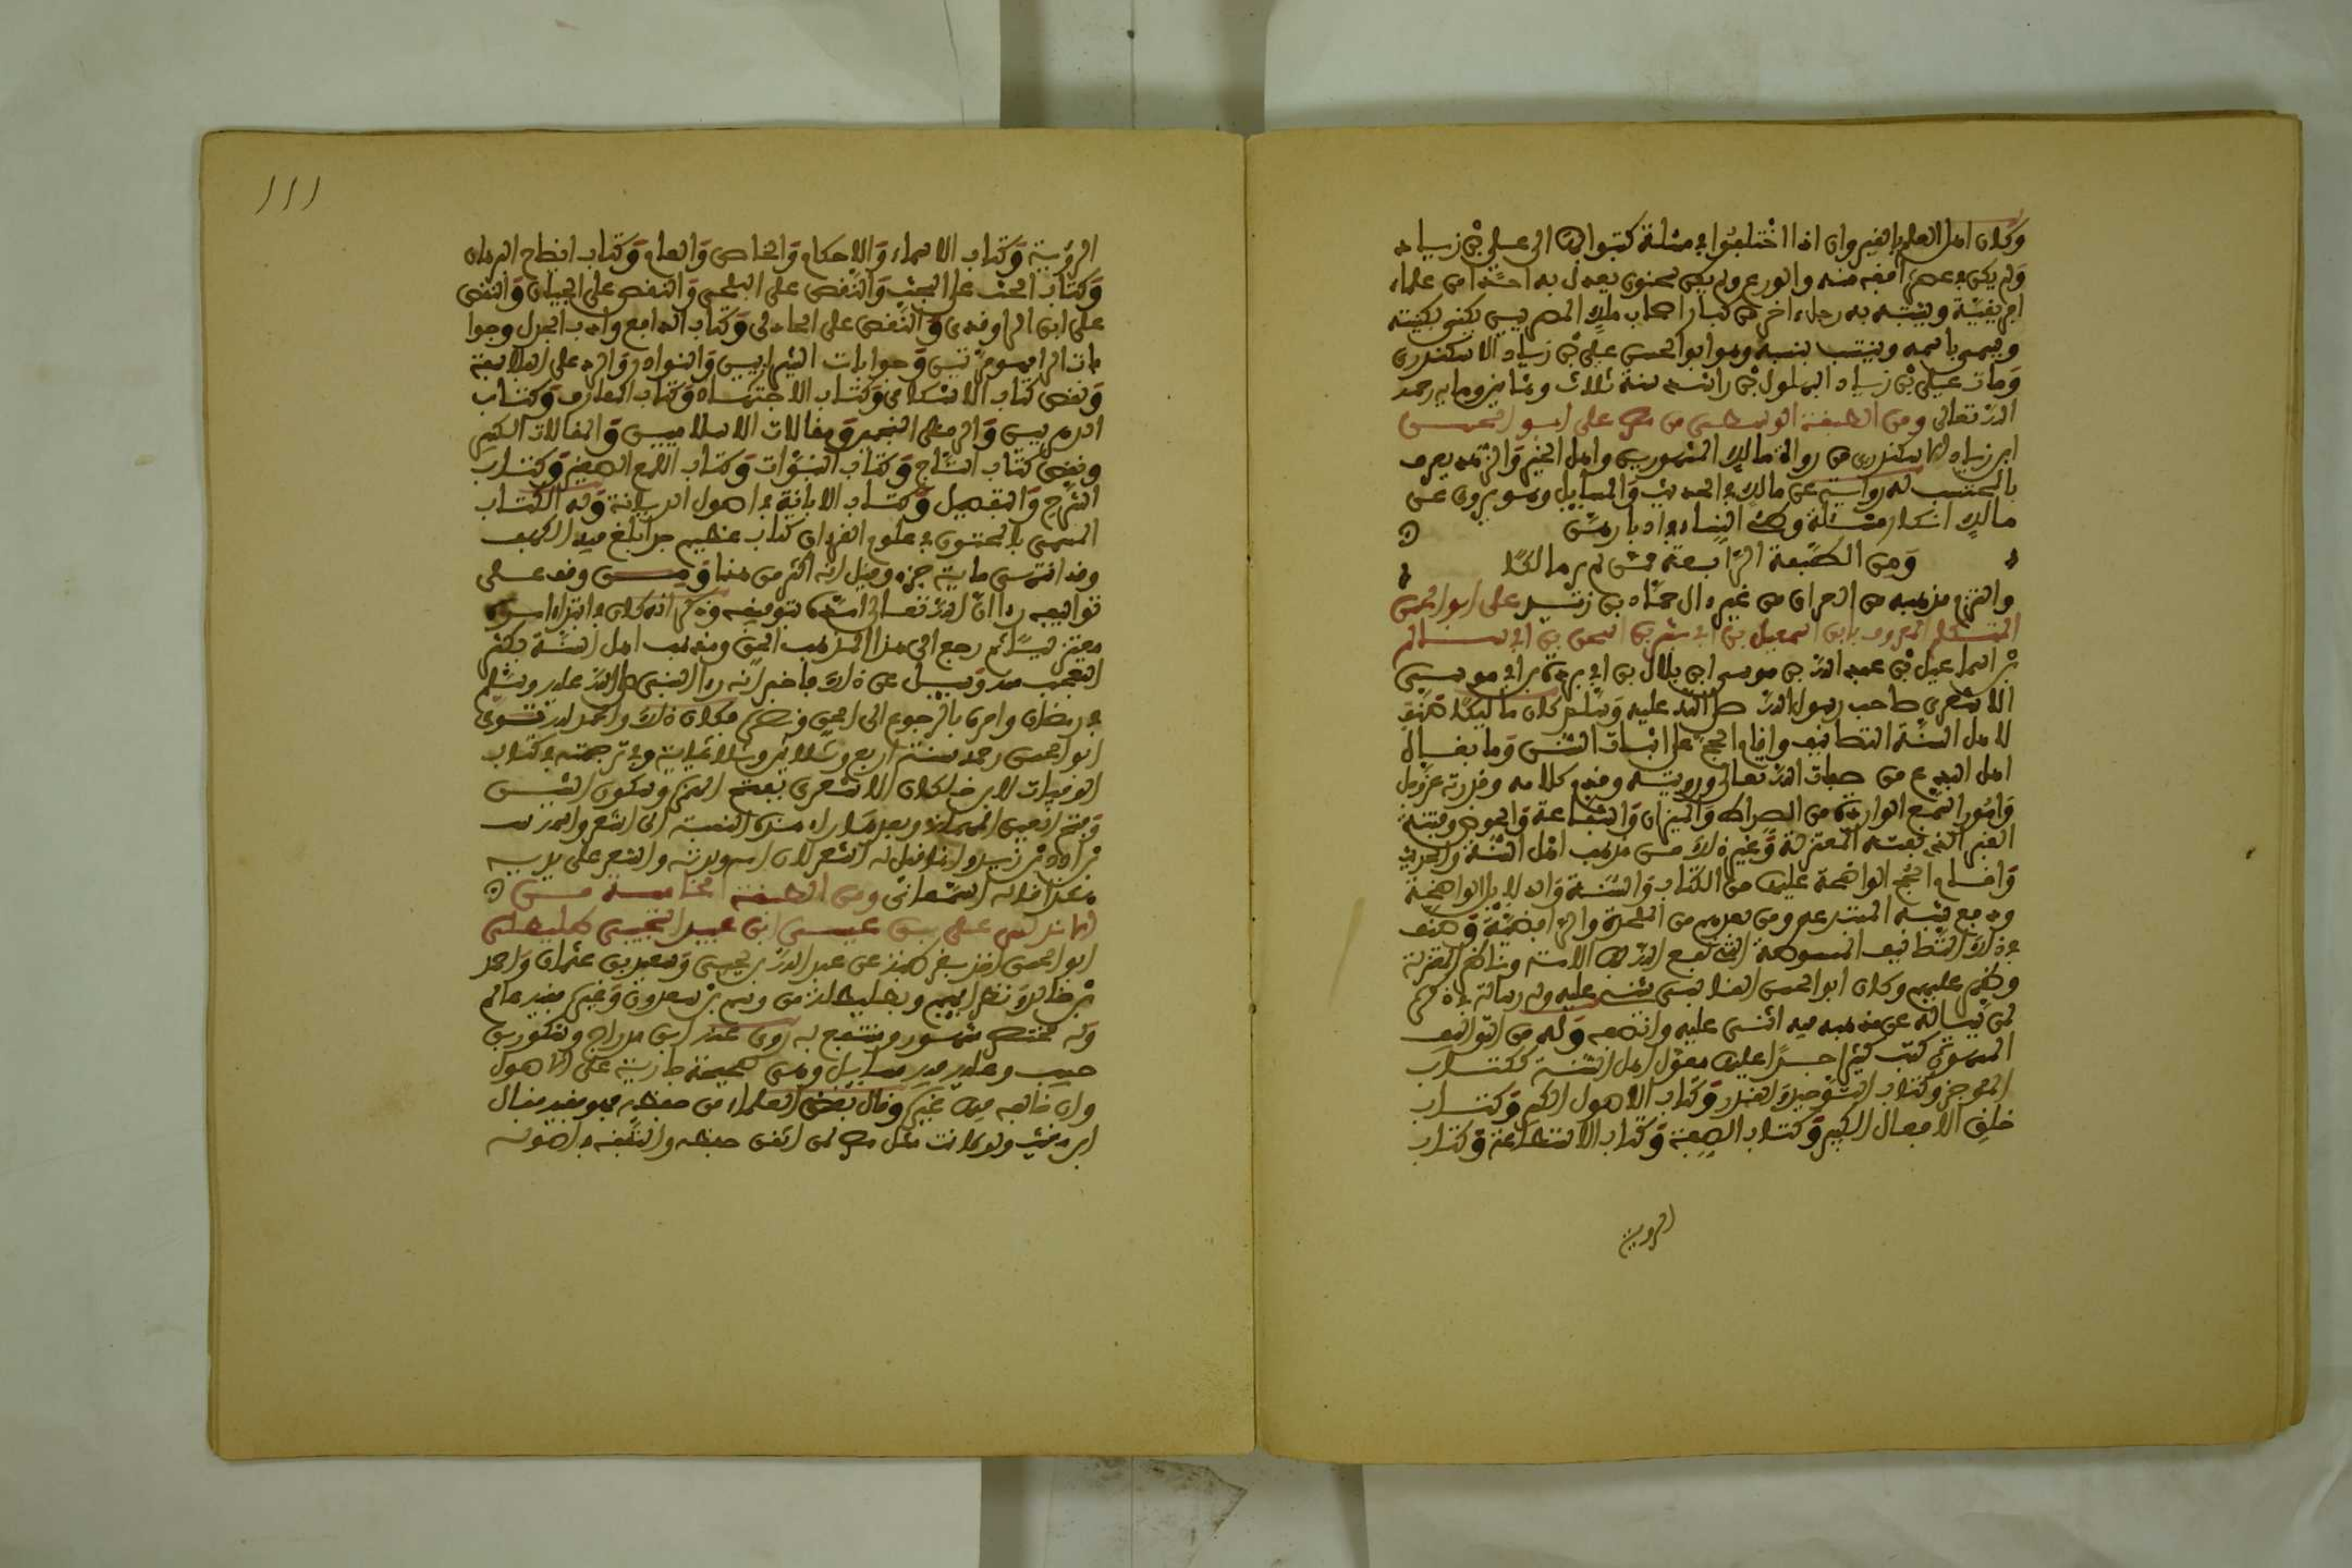 وكان اهل العلم بالقيروان اذا اختلفوا في مسئلة كتبوا بها الى علي بن زياد
ولم يكن في عصره افقه منه والورع ولم يكن سحنون يعدل به احدا من علماء
افريقية ويشتبه به رجل اخر من كبار اصحاب ملك المصريين يكنى بكنيته
ويسمى باسمه وينتسب نسبه وهو ابو الحسن علي بن زياد الاسكندري
ومات علي بن زياد البهلول بن راشد سنة ثلاث وثمانين وماية رحمه
الله تعالى ومن الطبقة الوسطى من مصر علي ابو الحسن
ابن زياد الاسكندري من رواة مالك المشهورين واهل الخير والزهد يعرف
بالمحتسب له رواية عن مالك في الحديث والمسايل وهو يروى عن
مالك انكار مسئلة وطئ النساء في ادبارهن
ومن الطبقة الرابعة ممن لم ير مالكا
والتزم مذهبه من العراق من غير ال حماد بن زيد علي ابو الحسن
المتكلم المعروف بابن اسمعيل بن ابي بشر بن اسحق بن ابي سالم
بن اسماعيل بن عبد الله بن موسى بن بلال بن ابي بردة بن ابي موسى
الاشعري صاحب رسول الله صلى الله عليه وسلم كان مالكيا صنف
لاهل السنة التصانيف واقام الحجج على اثبات السنن وما نفاه
اهل البدع من صفات الله تعالى ورويته وقدم كلامه وقدرته عز وجل
وامور السمع الواردة من الصراط والميزان والشفاعة والحوض وفتنة
القبر الذي نفته المعتزلة وغير ذلك من مذهب اهل السنة والحديث
واقام الحجج الواضحة عليها من الكتاب والسنة والدلايل الواضحة
ودفع شبه المبتدعه ومن بعدهم من الملحدة والرافضة وصنف
في ذلك التصانيف المبسوطة التي نفع الله بها الامة وناظر المعتزلة
وظهر عليهم وكان ابو الحسن القابسي يثني عليه وله رسالة في ذكره
لمن يساله عن مذهبه فيه اثنى عليه وانصفه وله من التواليف
المشهورة كتب كثيرة جدا عليها معول اهل السنة ككتاب
الموجز وكتاب التوحيد والقدر وكتاب الاصول الكبير وكتاب
خلق الافعال الكبير وكتاب الصفة وكتاب الاستطاعة وكتاب
الروية
١١١
الرؤية وكتاب الاسماء والاحكام والخاص والعام وكتاب ايضاح البرهان
وكتاب الحث على البحث والنقض على البلخي والنقض على الجبائي والنقض
على ابن الراوندي والنقض على الخالدي وكتاب الدامغ وادب الجدل وجوا
بات الطبريين وجوابات الشيرازيين والنوادر والرد على الفلاسفة
ونقض كتاب الاسكافي وكتاب الاجتهاد وكتاب المعارف وكتاب
الدهريين والرد على المنجمين ومقالات الاسلاميين والمقالات الكبير
ونقض كتاب التاج وكتاب النبوات وكتاب اللمع الصغير وكتاب
الشرح والتفصيل وكتاب الابانة في اصول الديانة وله الكتاب
المسمى بالمختزن في علوم القران كتاب عظيم جدا بلغ فيه الكهف
وقد انتهى ماية جزء وقيل انه اكثر من هذا ومن وقف على
تواليفه راى ان الله تعالى امده بتوفيقه وذكر انه كان في ابتداء امره
معتزليا ثم رجع الى هذا المذهب الحق ومذهب اهل السنة فكثر
التعجب منه وسيل عن ذلك فاخبر انه راى النبي صلى الله عليه وسلم
في رمضان وامره بالرجوع الى الحق ونصره فكان ذلك والحمد لله توفى
ابو الحسن رحمه سنة اربع وثلاثين وثلاثماية وفي ترجمته في كتاب
الوفيات لابن خلكان الاشعري بفتح الهمزة وسكون الشين
وفتح العين المهملة وبعدها راء هذه النسبة الى اشعر واسمه نبت
بن ادد بن زيد وانما قيل له اشعر لان امه ولدته والشعر على بدنه
هكذا قاله السمعاني ومن الطبقة الخامسة من
الاندلس علي بن عيسى ابن عبيد التجيبي طليطلي
ابو الحسن اخذ بقرطبة عن عبيد الله بن يحيى وسعيد بن عثمان واحمد
بن خالد ونظرايهم وبطليطلة من وسيم بن سعدون وغيره فقيه عالم
وله مختصر مشهور ومنتفع به روى عنه ابن مدراج وشكور بن
حبيب وعليه فيه مسايل وهي صحيحة جارية على الاصول
وان خالفه فيها غيره وقال بعض العلماء من حفظه فهو فقيه فقال
ابن مغيث ولو كانت مثل مصر لمن اتقن حفظه والتفقه في اصوله